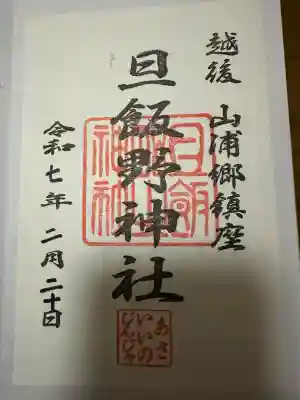 越後 山浦郷鎮座
旦飯野神社
令和七年 二月二十日
あさ
いいの
じんじゃ